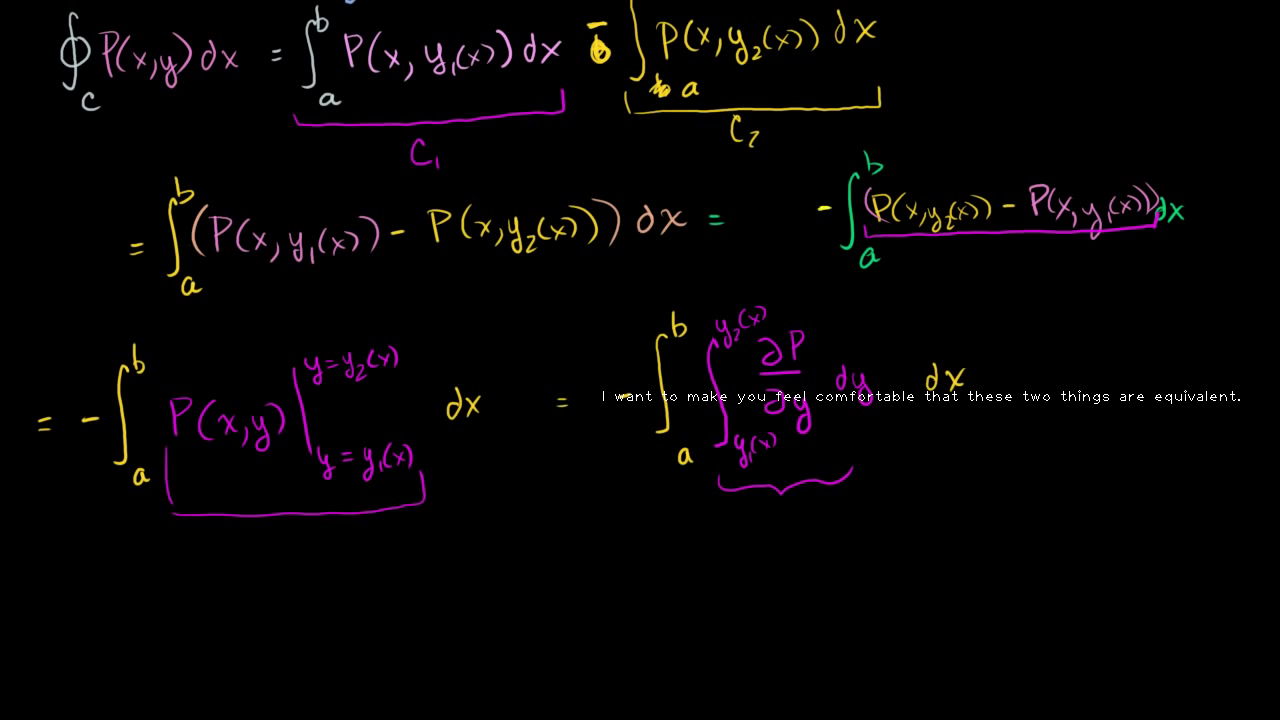 ∮_C P(x,y) dx = ∫_a^b P(x, y₁(x)) dx - ∫_a P(x, y₂(x)) dx
C₁ C₂
= ∫_a^b (P(x, y₁(x)) - P(x, y₂(x))) dx = - ∫_a^b (P(x, y₂(x)) - P(x, y₁(x))) dx
= - ∫_a^b P(x,y) |_{y = y₁(x)}^{y = y₂(x)} dx = - ∫_a^b ∫_{y₁(x)}^{y₂(x)} ∂P/∂y dy dx
I want to make you feel comfortable that these two things are equivalent.